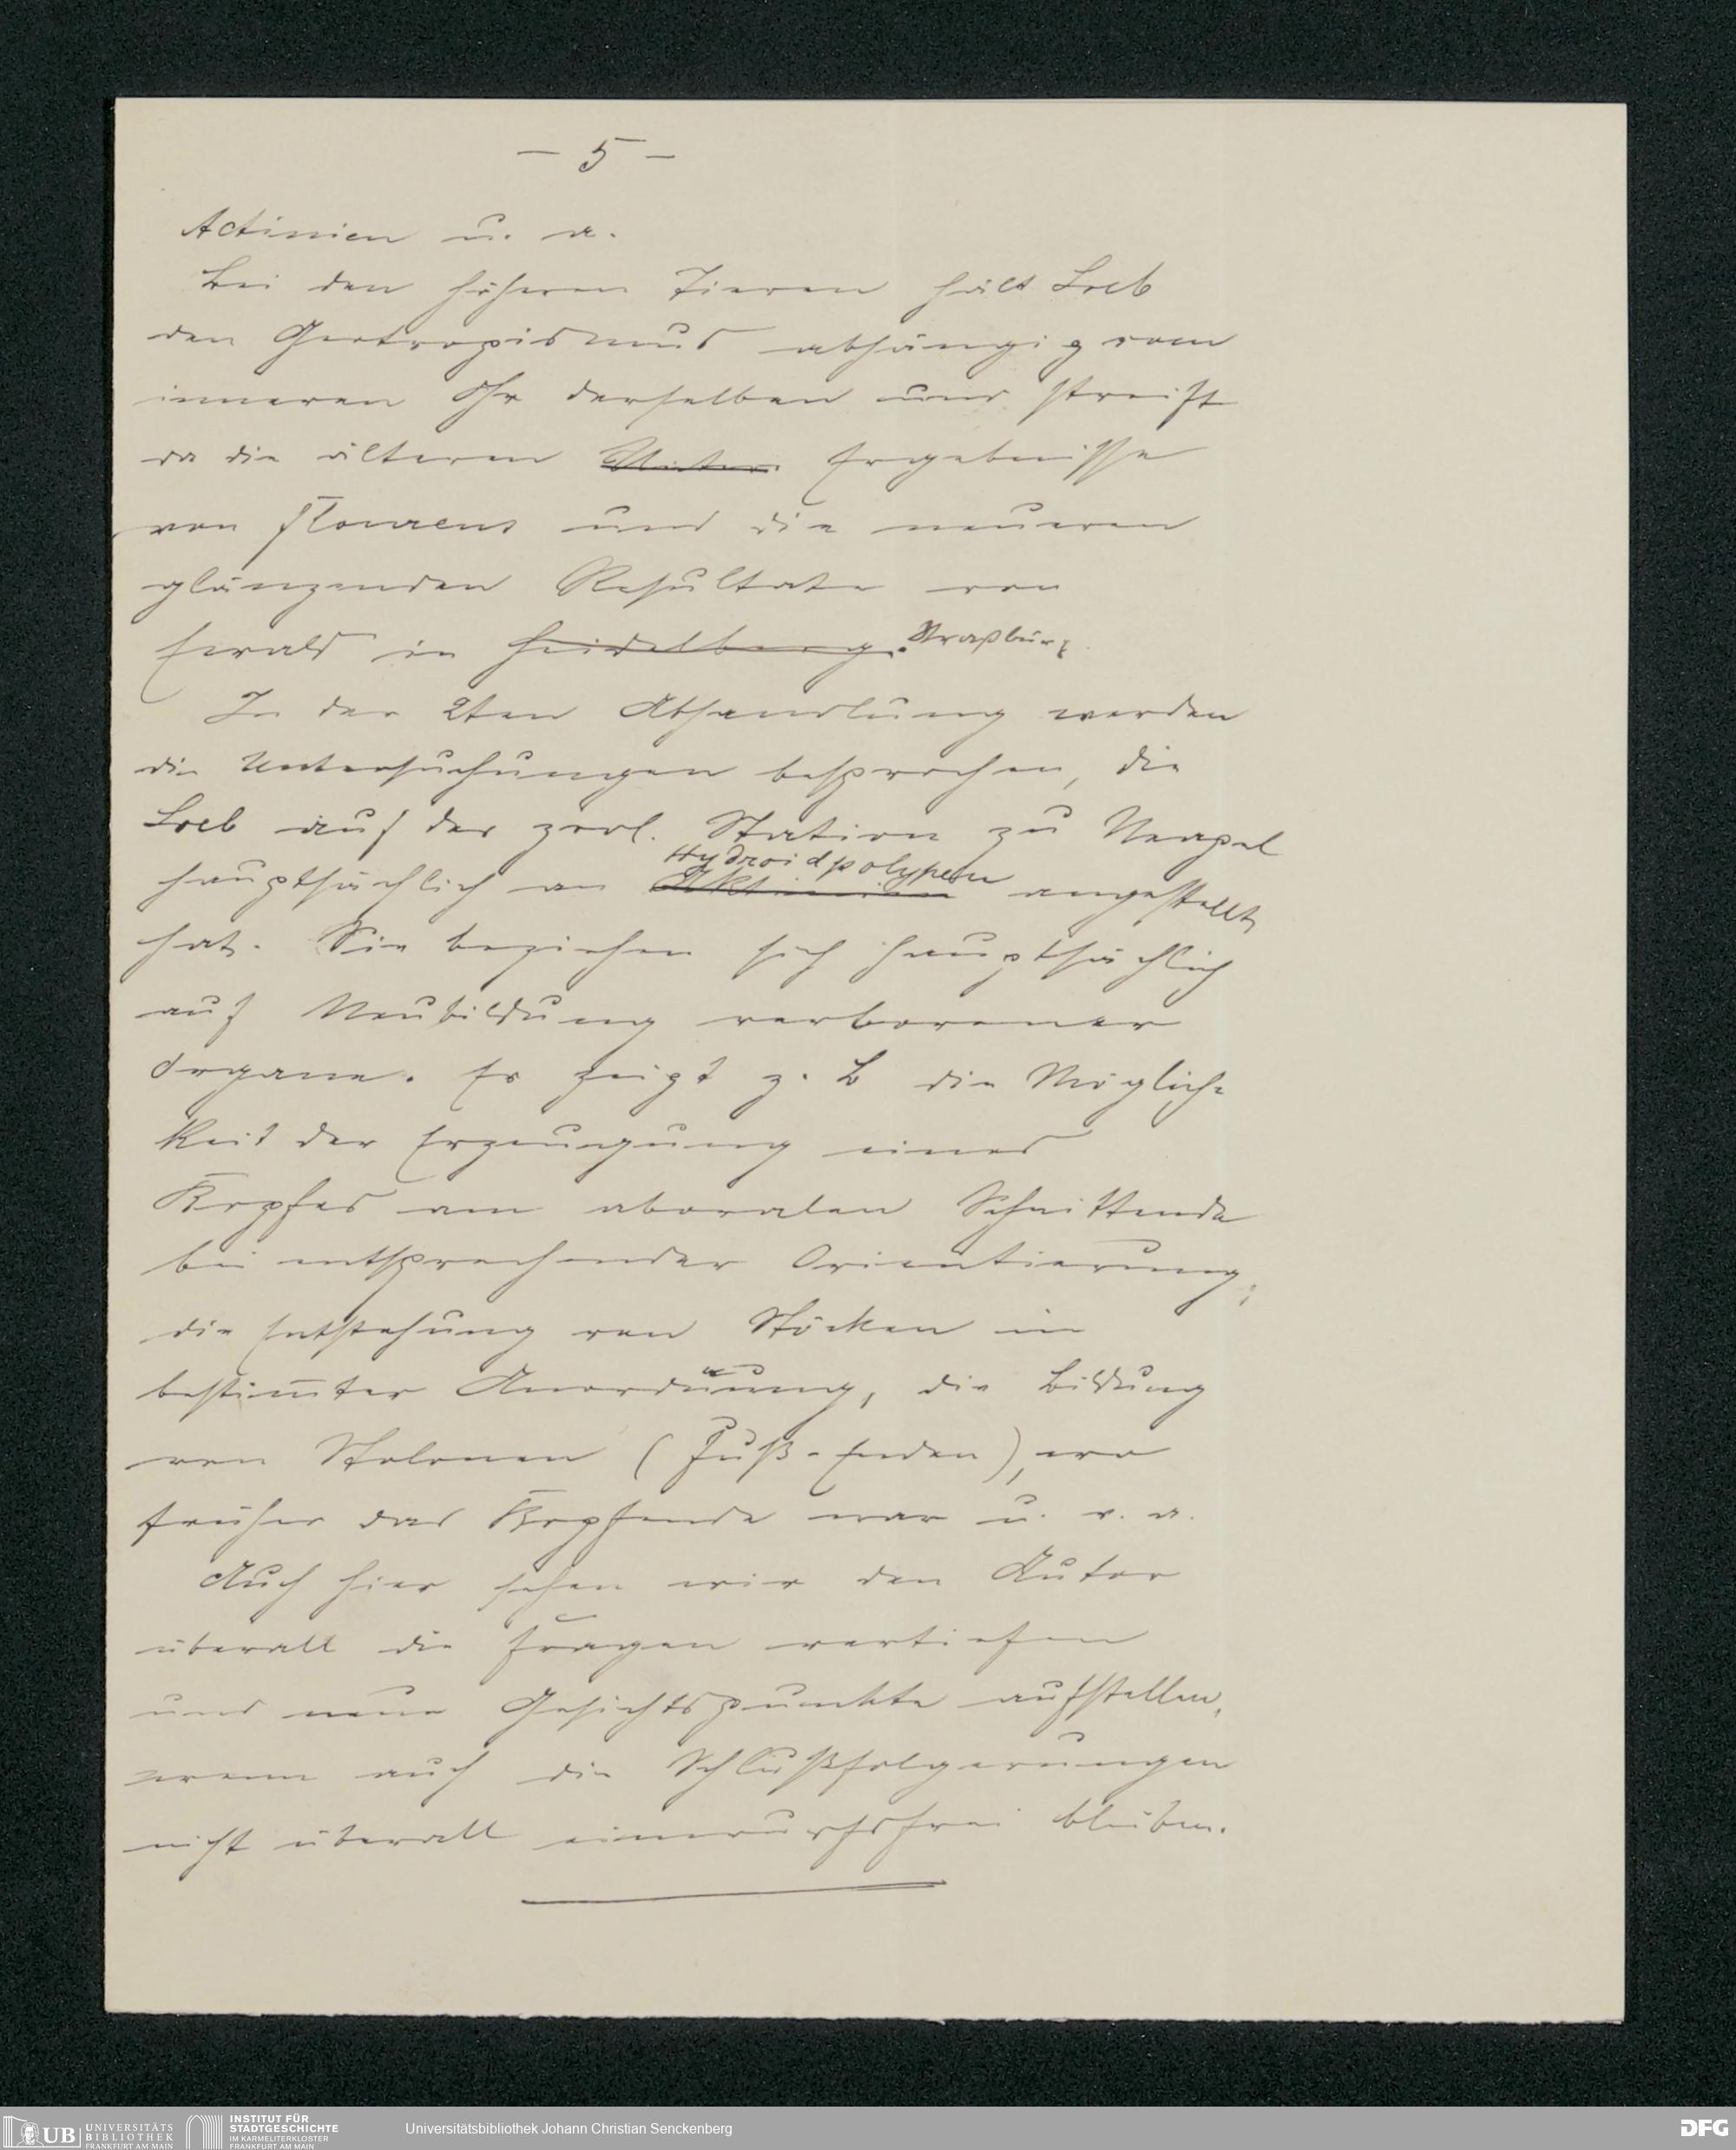 – 5 –
Actinien u. a.
Bei den höheren Tieren hält Loeb
den Geotropismus abhängig vom
inneren Ohr derselben und streift
da die älteren Ergebnisse
von Flourens und die neueren
glänzenden Resultate von
Ewald in Heidelberg. Straßburg.
In der 2ten Abhandlung werden
die Untersuchungen besprochen, die
Loeb auf der zool. Station zu Neapel
Hydroidpolypen
hauptsächlich an Aktinien angestellt
hat. Sie beziehen sich hauptsächlich
auf Neubildung verlorener
Organe. Er zeigt z. B die Möglich-
keit der Erzeugung eines
Kopfes am aboralen Schnittende
bei entsprechender Orientierung;
die Entstehung von Stöcken in
bestim̅ter Anordnung, die Bildung
von Stolonen (Fuß-Enden), wo
früher das Kopfende war u. v. a.
Auch hier sehen wir den Autor
überall die Fragen vertiefen
und neue Gesichtspunkte aufstellen,
wenn auch die Schlußfolgerungen
nicht überall einwurfsfrei bleiben.
UB UNIVERSITÄTS
BIBLIOTHEK
FRANKFURT AM MAIN
INSTITUT FÜR
STADTGESCHICHTE
IM KARMELITERKLOSTER
FRANKFURT AM MAIN
Universitätsbibliothek Johann Christian Senckenberg
DFG